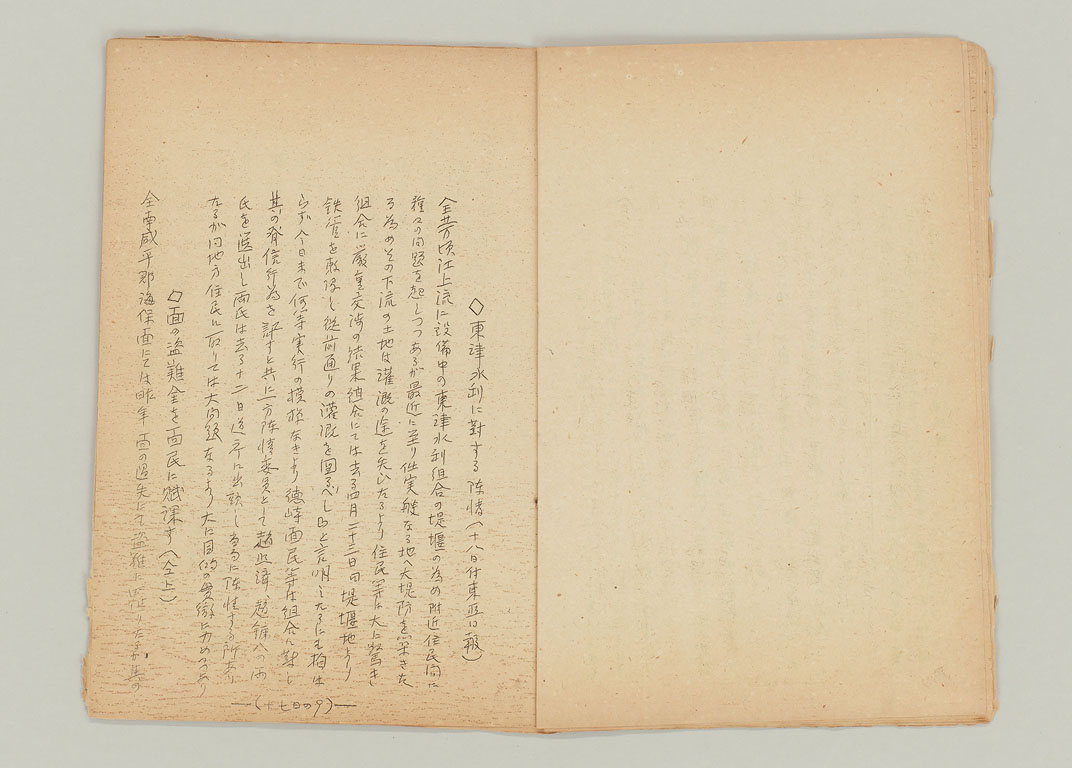 ◇東津水利に對する陳情（十八日付東亜日報）
全芳頃江上流に設備中の東津水利組合の堤堰の為め附近住民間に
種々の問題を起しつつあるが最近に至り仕実般なる地へ大堤防を築きた
る為めその下流の土地は灌漑の途を失ひたるより住民等は大に驚き
組合に厳重交渉の結果組合にては去る四月二十三日向堤堰地より
鉄管を敷設し従前通りの灌漑を図るべしと言明したるにも拘は
らず今日まで何等実行の模様なきより徳峙面民等は組合に対し
其の背信行為を詰すと共に一方陳情委員として趙 趙 の両
氏を選出し両氏は去る十二日道庁に出頭し当局に陳情する所あり
たるが同地方住民に取りては大問題なるより大に目的の貫徹に力めつゝあり
◇面の盗難金を面民に賦課す（仝上）
全南咸平郡海保面にては昨年面の過失にて盗難に罹りたるが其の
―（十七日の9）―